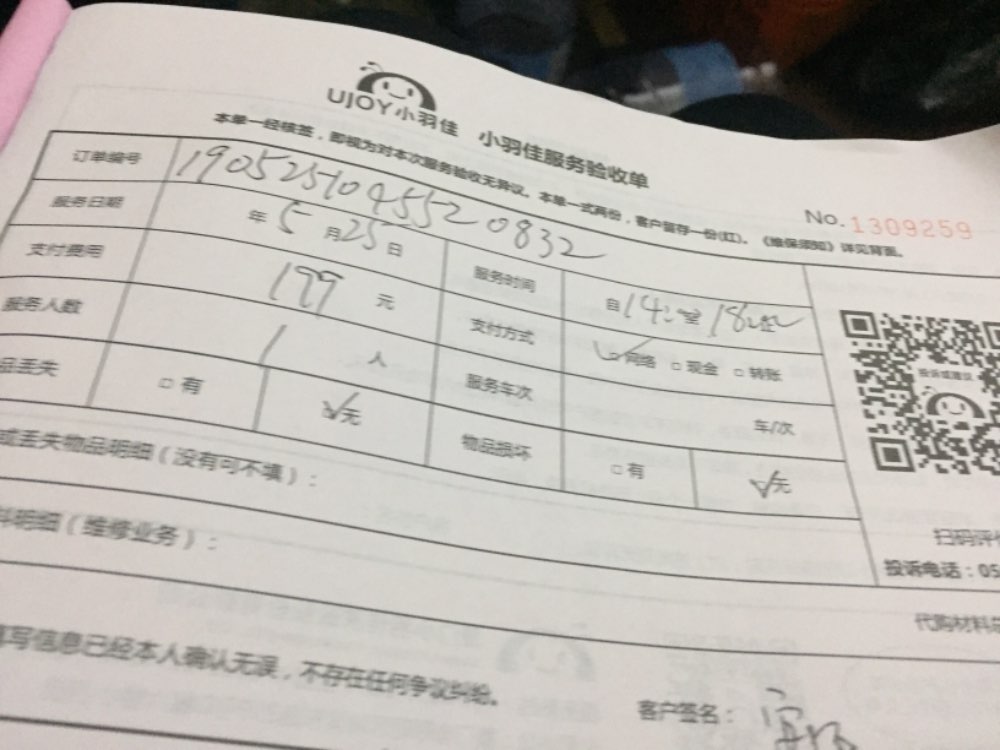 UJOY小羽佳 小羽佳服务验收单
本单一经核签，即视为对本次服务验收无异议。本单一式两份，客户留存一份(红)。《维保须知》详见背面。
No. 1309259
订单编号 19052510455520832
服务日期 年 5 月 25 日 服务时间 自 14:00至 18:00
支付费用 199 元 支付方式 ☑网络 □现金 □转账
服务人数 1 人 服务车次 车/次
品丢失 □有 ☑无 物品损坏 □有 ☑无
投诉或建议
或丢失物品明细（没有可不填）：
扫码评价
料明细（维修业务）：
投诉电话：05
代购材料总
填写信息已经本人确认无误，不存在任何争议纠纷。
客户签名：